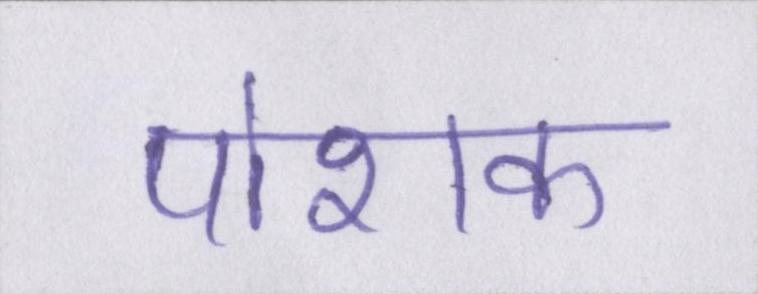 पोशक